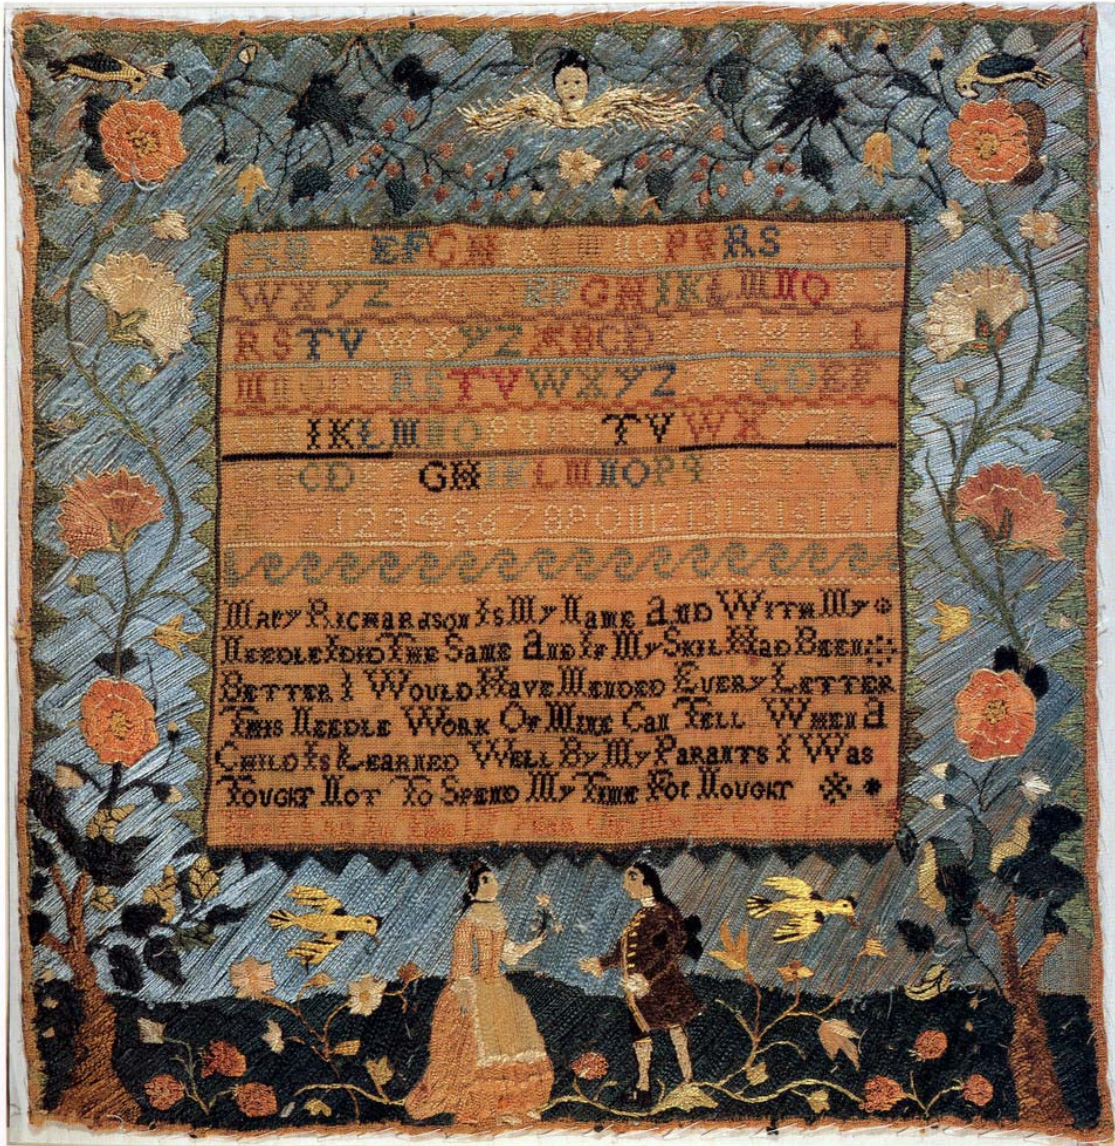 A B C D E F G H I K L M N O P Q R S T V U
W X Y Z E F G H I K L M N O P Q
R S T V W X Y Z A B C D E F G H I K L
M N O P Q R S T V W X Y Z A B C D E F
I K L M N O P Q R S T V W X Y Z
C D G H I K L M N O P Q R S T V W
1 2 3 4 5 6 7 8 9 0 11 12 13 14 15 16 1
Mary Richardson Is My Name And With My
Needle I Did The Same And If My Skil Had Been
Better I Would Have Mended Every Letter
This Needle Work Of Mine Can Tell When a
Child Is Learned Well By My Parants I Was
Tought Not To Spend My Time For Nought